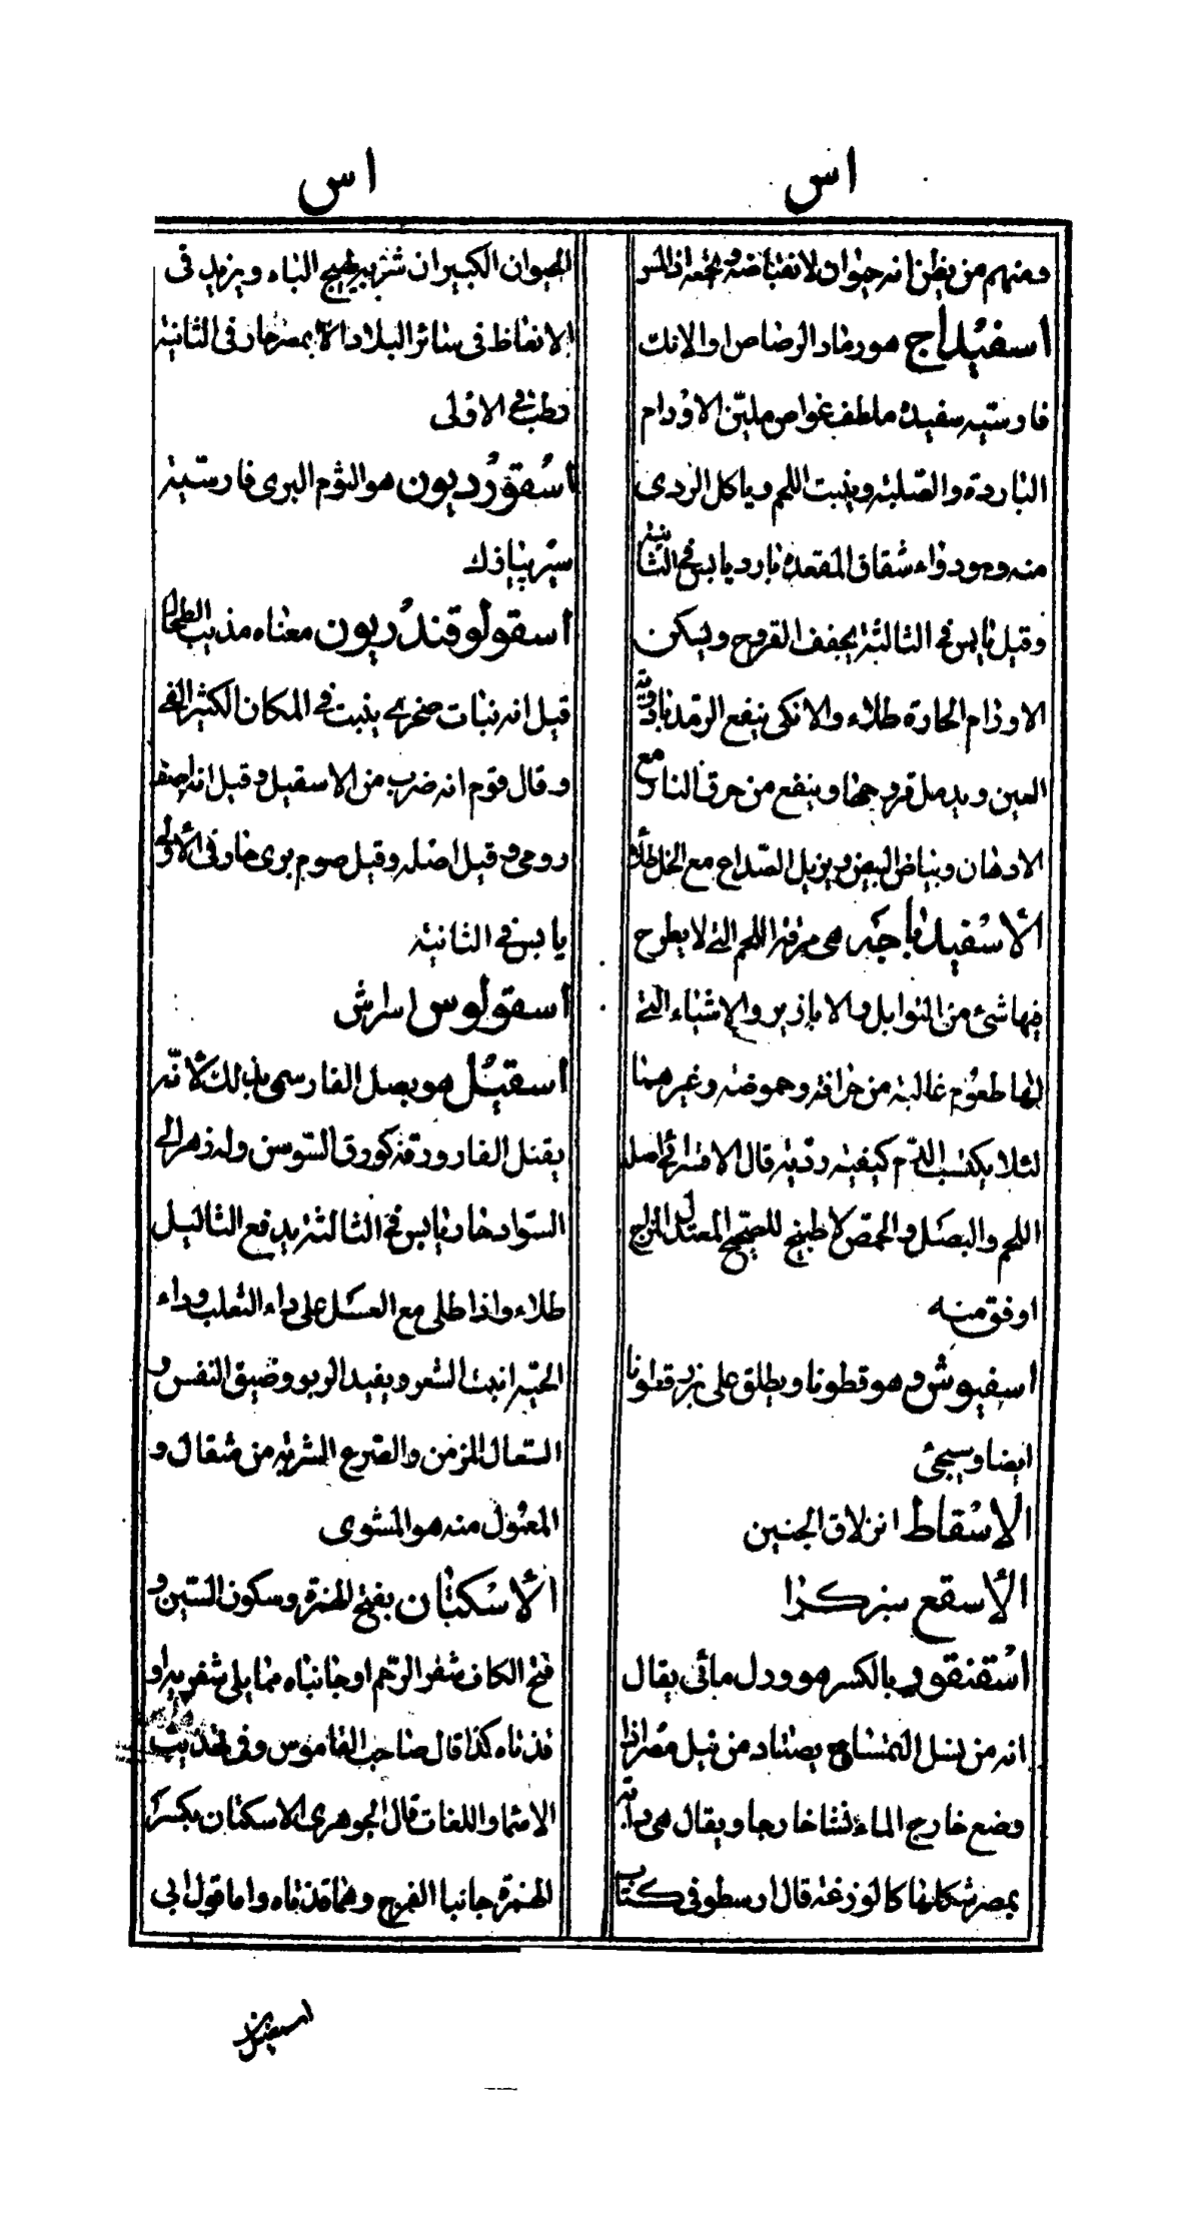 اس
ومنهم من يظن انه حيوان لانقباضه وتجمعه اذا لمس
اسفيداج هو رماد الرصاص او الانك
فارسيته سفيده ملطف غواص ملين الاورام
الباردة والصلبة وينبت اللحم وياكل الردى
منه وهو دواء شقاق المقعدة بارد يابس فى الثانية
وقيل يابس فى الثالثة يجفف القروح ويسكن
الاورام الحارة طلاء والانكى ينفع الرمد بادوية
العين ويدمل قروحها وينفع من حرق النار مع
الادهان وبياض البيض ويزيل الصداع مع الخل طلاء
الأسفيدباجه هى مرقة اللحم التى لا يطرح
فيها شئ من التوابل والابازير والاشياء التى
لها طعوم غالبة من حرافة وحموضة وغيرهما
لئلا يكتسب الدم كيفية ردئة قال الاقسرائى اصله
اللحم والبصل والحمص لا طبيخ للصحيح المعتدل المزاج
اوفق منه
اسفيوش هو قطونا ويطلق على بزر قطونا
ايضا وسيجئ
الاسقاط انزلاق الجنين
الأسقع سبزكرا
اسقنقور بالكسر هو ورل مائى يقال
انه من نسل التمساح يصتاد من نيل مصر اذا
وضع خارج الماء نشا خارجا ويقال هى دابة
بمصر شكلها كالوزغة قال ارسطو فى كتاب
اس
الحيوان الكبير ان شربه يهيج الباه ويزيد فى
الانعاظ فى سائر البلاد الا بمصر حار فى الثانية
رطب فى الاولى
اسقورديون هو الثوم البرى فارسيته
سير پيازك
اسقولوقندريون معناه مذيب الطحال
قيل انه نبات صخرى ينبت فى المكان الكثير الفى
وقال قوم انه ضرب من الاسقيل وقيل انه
رومى وقيل اصله وقيل صوم برى حار فى الأولى
يابس فى الثانية
اسقولوس اسراش
اسقيل هو بصل الفار سمى بذلك لأنه
يقتل الفار ورقه كورق السوسن وله زهر الى
السواد حار يابس فى الثالثة يدفع الثاليل
طلاء واذا طلى مع العسل على داء الثعلب وداء
الحية انبت الشعر ويفيد الربو وضيق النفس و
السعال المزمن والصرع الشربة من مثقال و
المعمول منه هو المشوى
الأسكتان بفتح الهمزة وسكون السين و
فتح الكاف شفر الرحم او جانباه مما يلى شفريه او
قذتاه كذا قال صاحب القاموس وفى تهذيب
الاسماء واللغات قال الجوهرى الاسكتان بكسر
الهمزة جانبا الفرج وهما قذتاه واما قول ابى